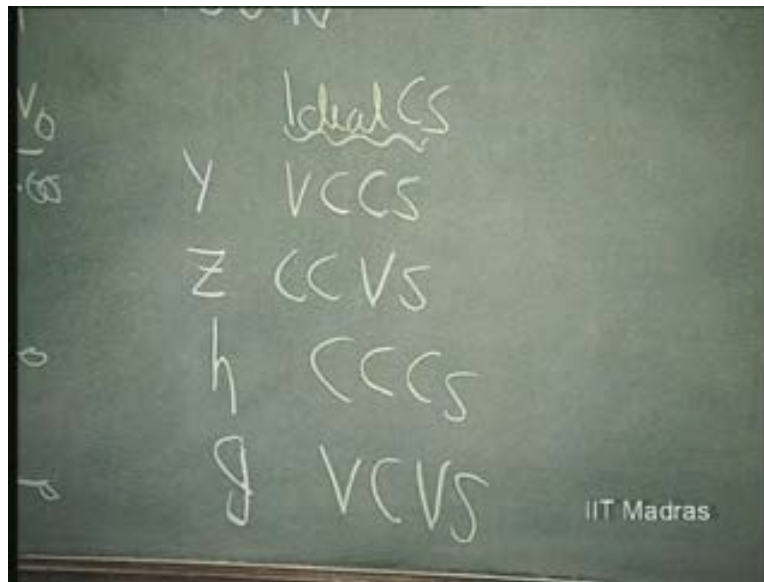 V0
Ideal CS
Y VCCS
Z CCVS
h CCCS
g VCVS
IIT Madras